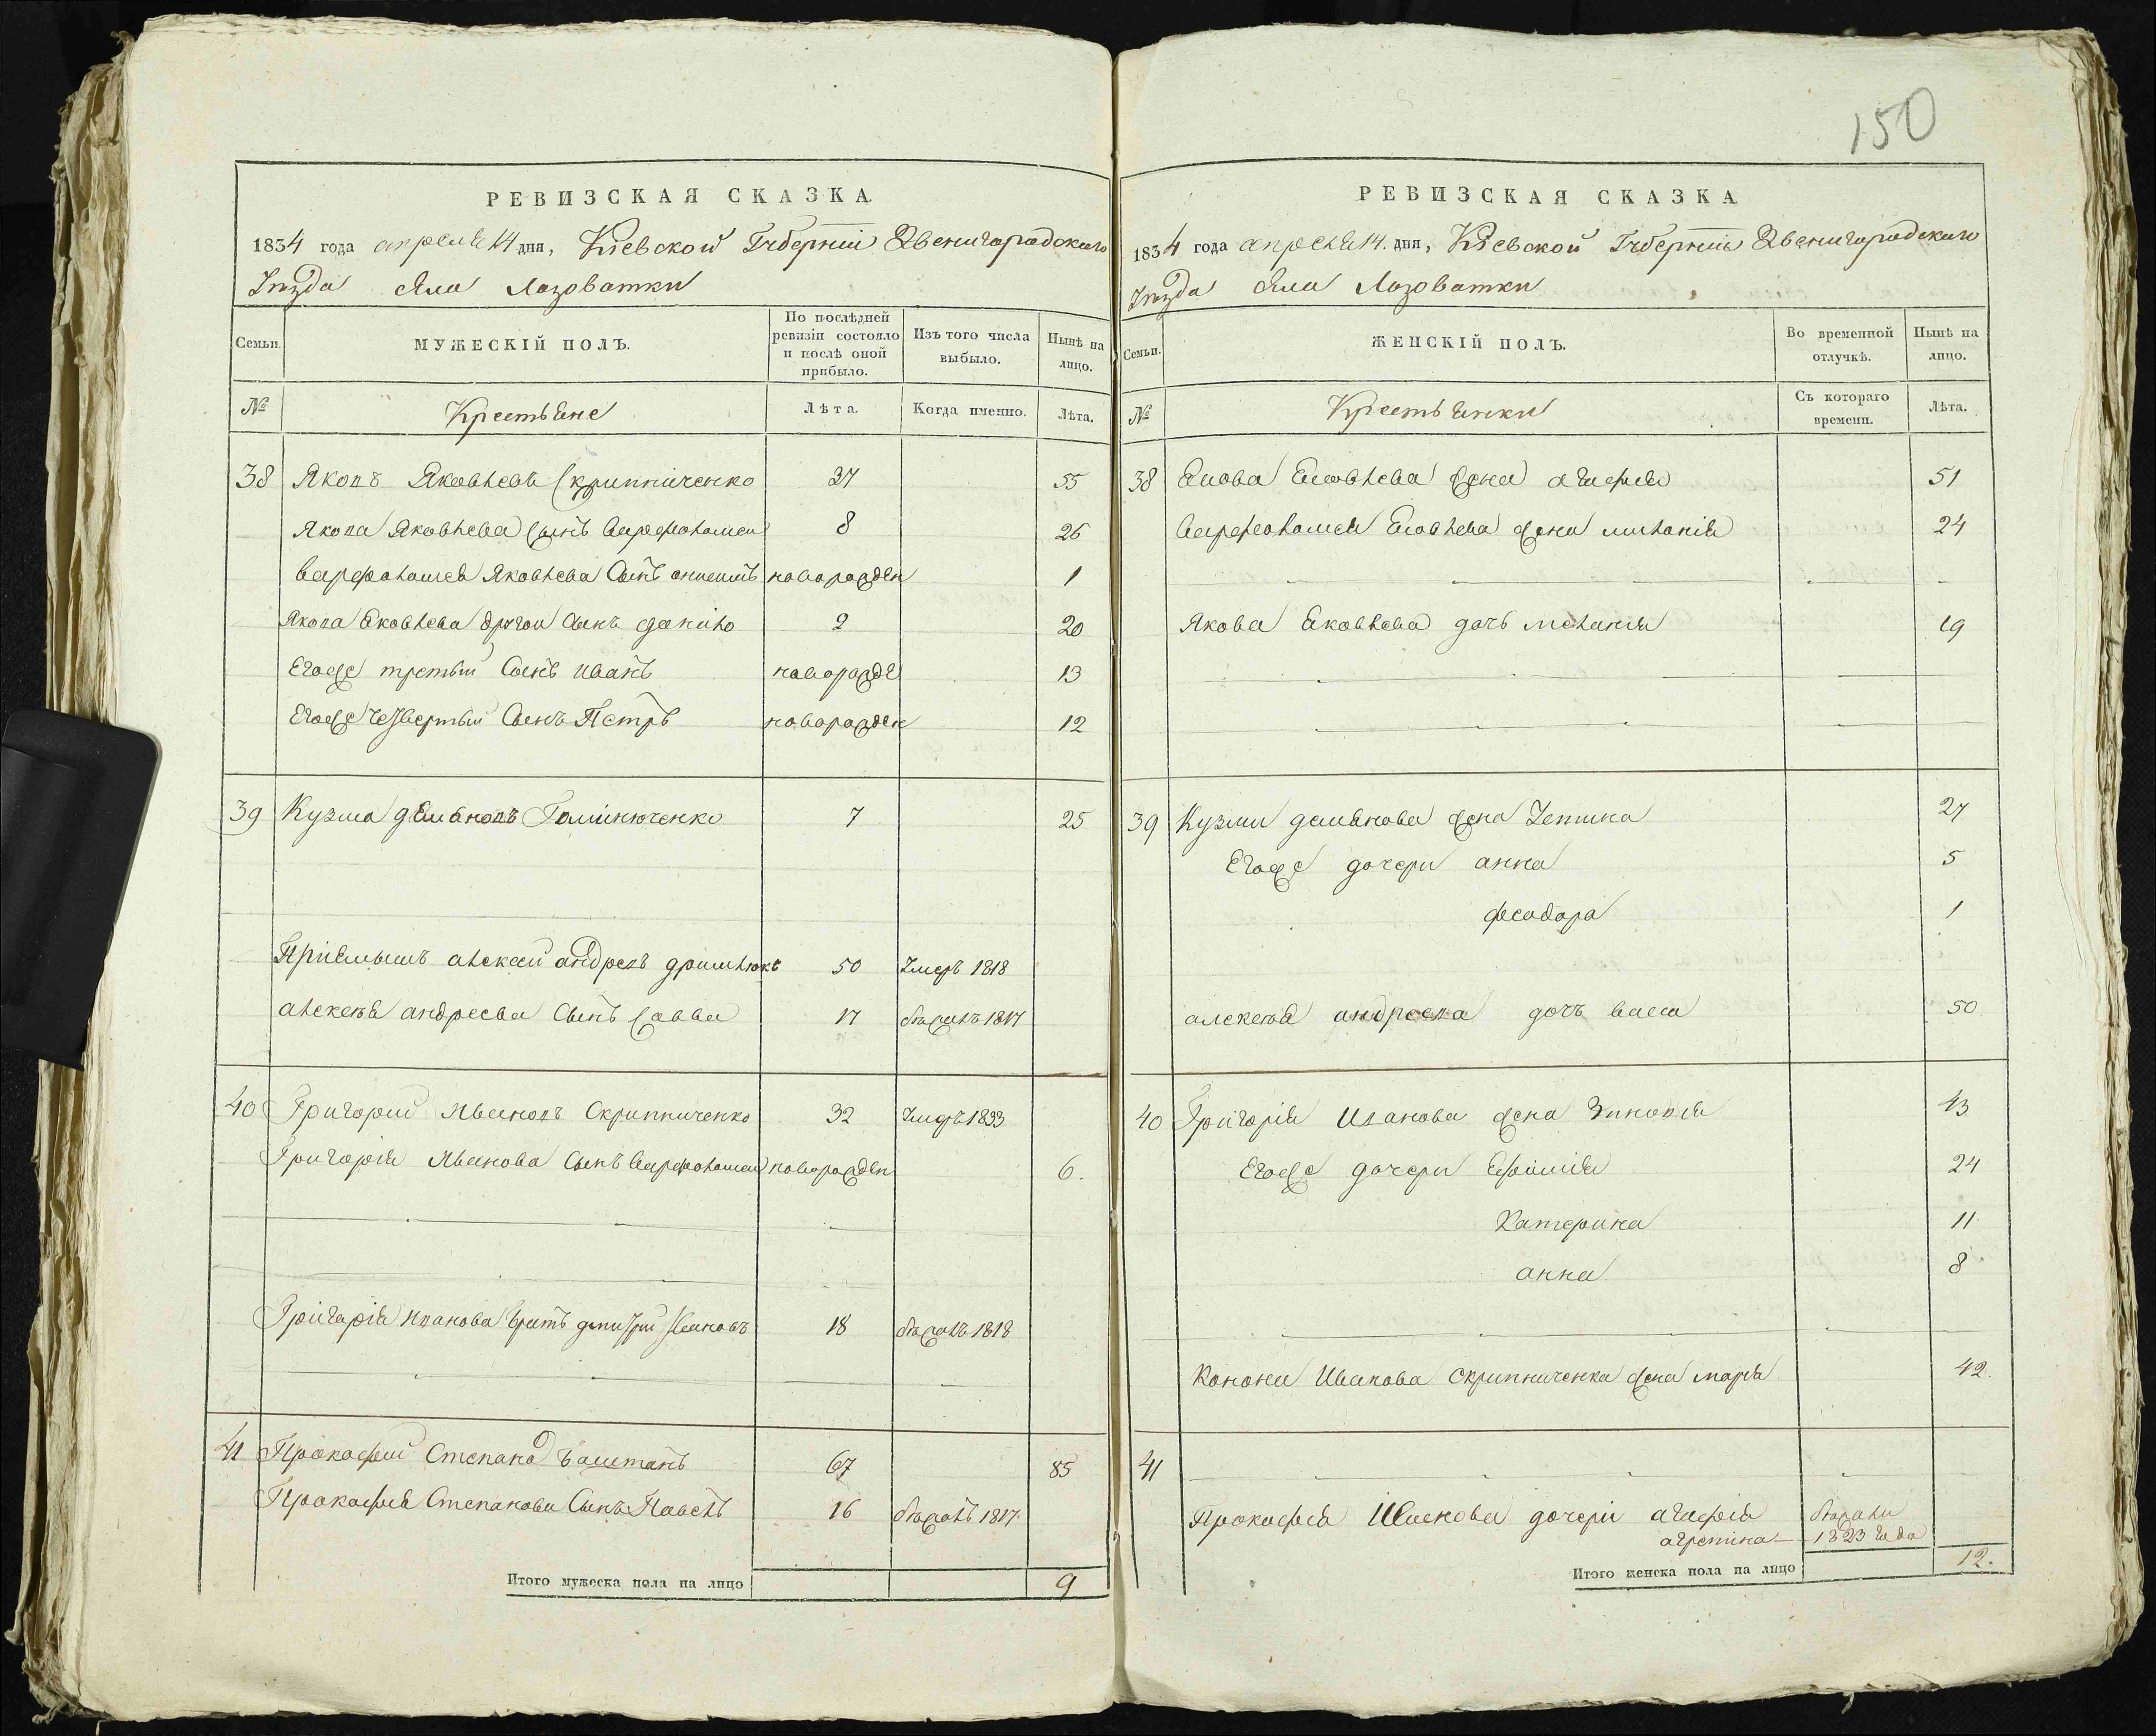 150
РЕВИЗСКАЯ СКАЗКА.
1834 года апреля 14 дня, Кіевской Губерніи Звенигородского
Уезда села Лозоватки
Семьи.
МУЖЕСКІЙ ПОЛЪ.
По послѣдней ревизіи состояло и послѣ оной прибыло.
Изъ того числа выбыло.
Нынѣ на лицо.
№ Крестьяне Лѣта. Когда именно. Лѣта.
38 Яковъ Яковлевъ Скрипниченко 37 55
Якова Яковлева Сынъ Варфоломей 8 26
Варфоломея Яковлева Сынъ новорожден 1
Якова Яковлева другой Сынъ данило 2 20
Егоже третый Сынъ иванъ новорожде 13
Егоже Четвертый Сынъ Петръ новорожден 12
39 Кузма демяновъ 7 25
Пріемышъ алексей андреевъ 50 Умеръ 1818
алексея андреева Сынъ Савва 17 бежалъ 1817
40 Григорий Ивановъ Скрипниченко 32 Умеръ 1833
Григорія Иванова Сынъ Варфоломей новорожден 6.
Григорія иванова братъ дмитрий Ивановъ 18 бежалъ 1818
41 Прокофий Степано баштанъ 67 85
Прокофия Степанова Сынъ Павелъ 16 бежалъ 1817.
Итого мужеска пола на лицо 9
РЕВИЗСКАЯ СКАЗКА
1834 года апреля 14. дня, Кіевской Губерніи Звенигородского
Уезда села Лозоватки
Семьи.
ЖЕНСКІЙ ПОЛЪ.
Во временной отлучкѣ.
Нынѣ на лицо.
№ Крестьянки Съ котораго времени. Лѣта.
38 Якова Яковлева жена агафия 51
Варфоломея Яковлева жена миланія 24
Якова Яковлева дочь мелания 19
39 Кузми демянова жена Устина 27
Егоже дочери анна 5
феодора 1
алексея андреева дочъ васса 50
40 Григорія Иванова жена Зиновія 43
Егоже дочери Ефимія 24
Катерина 11
анна 8
Конона Иванова Скрипниченка жена марія 42.
41
Прокофия дочери агафія бежали
агрепина 1823 года
Итого женска пола на лицо 12.